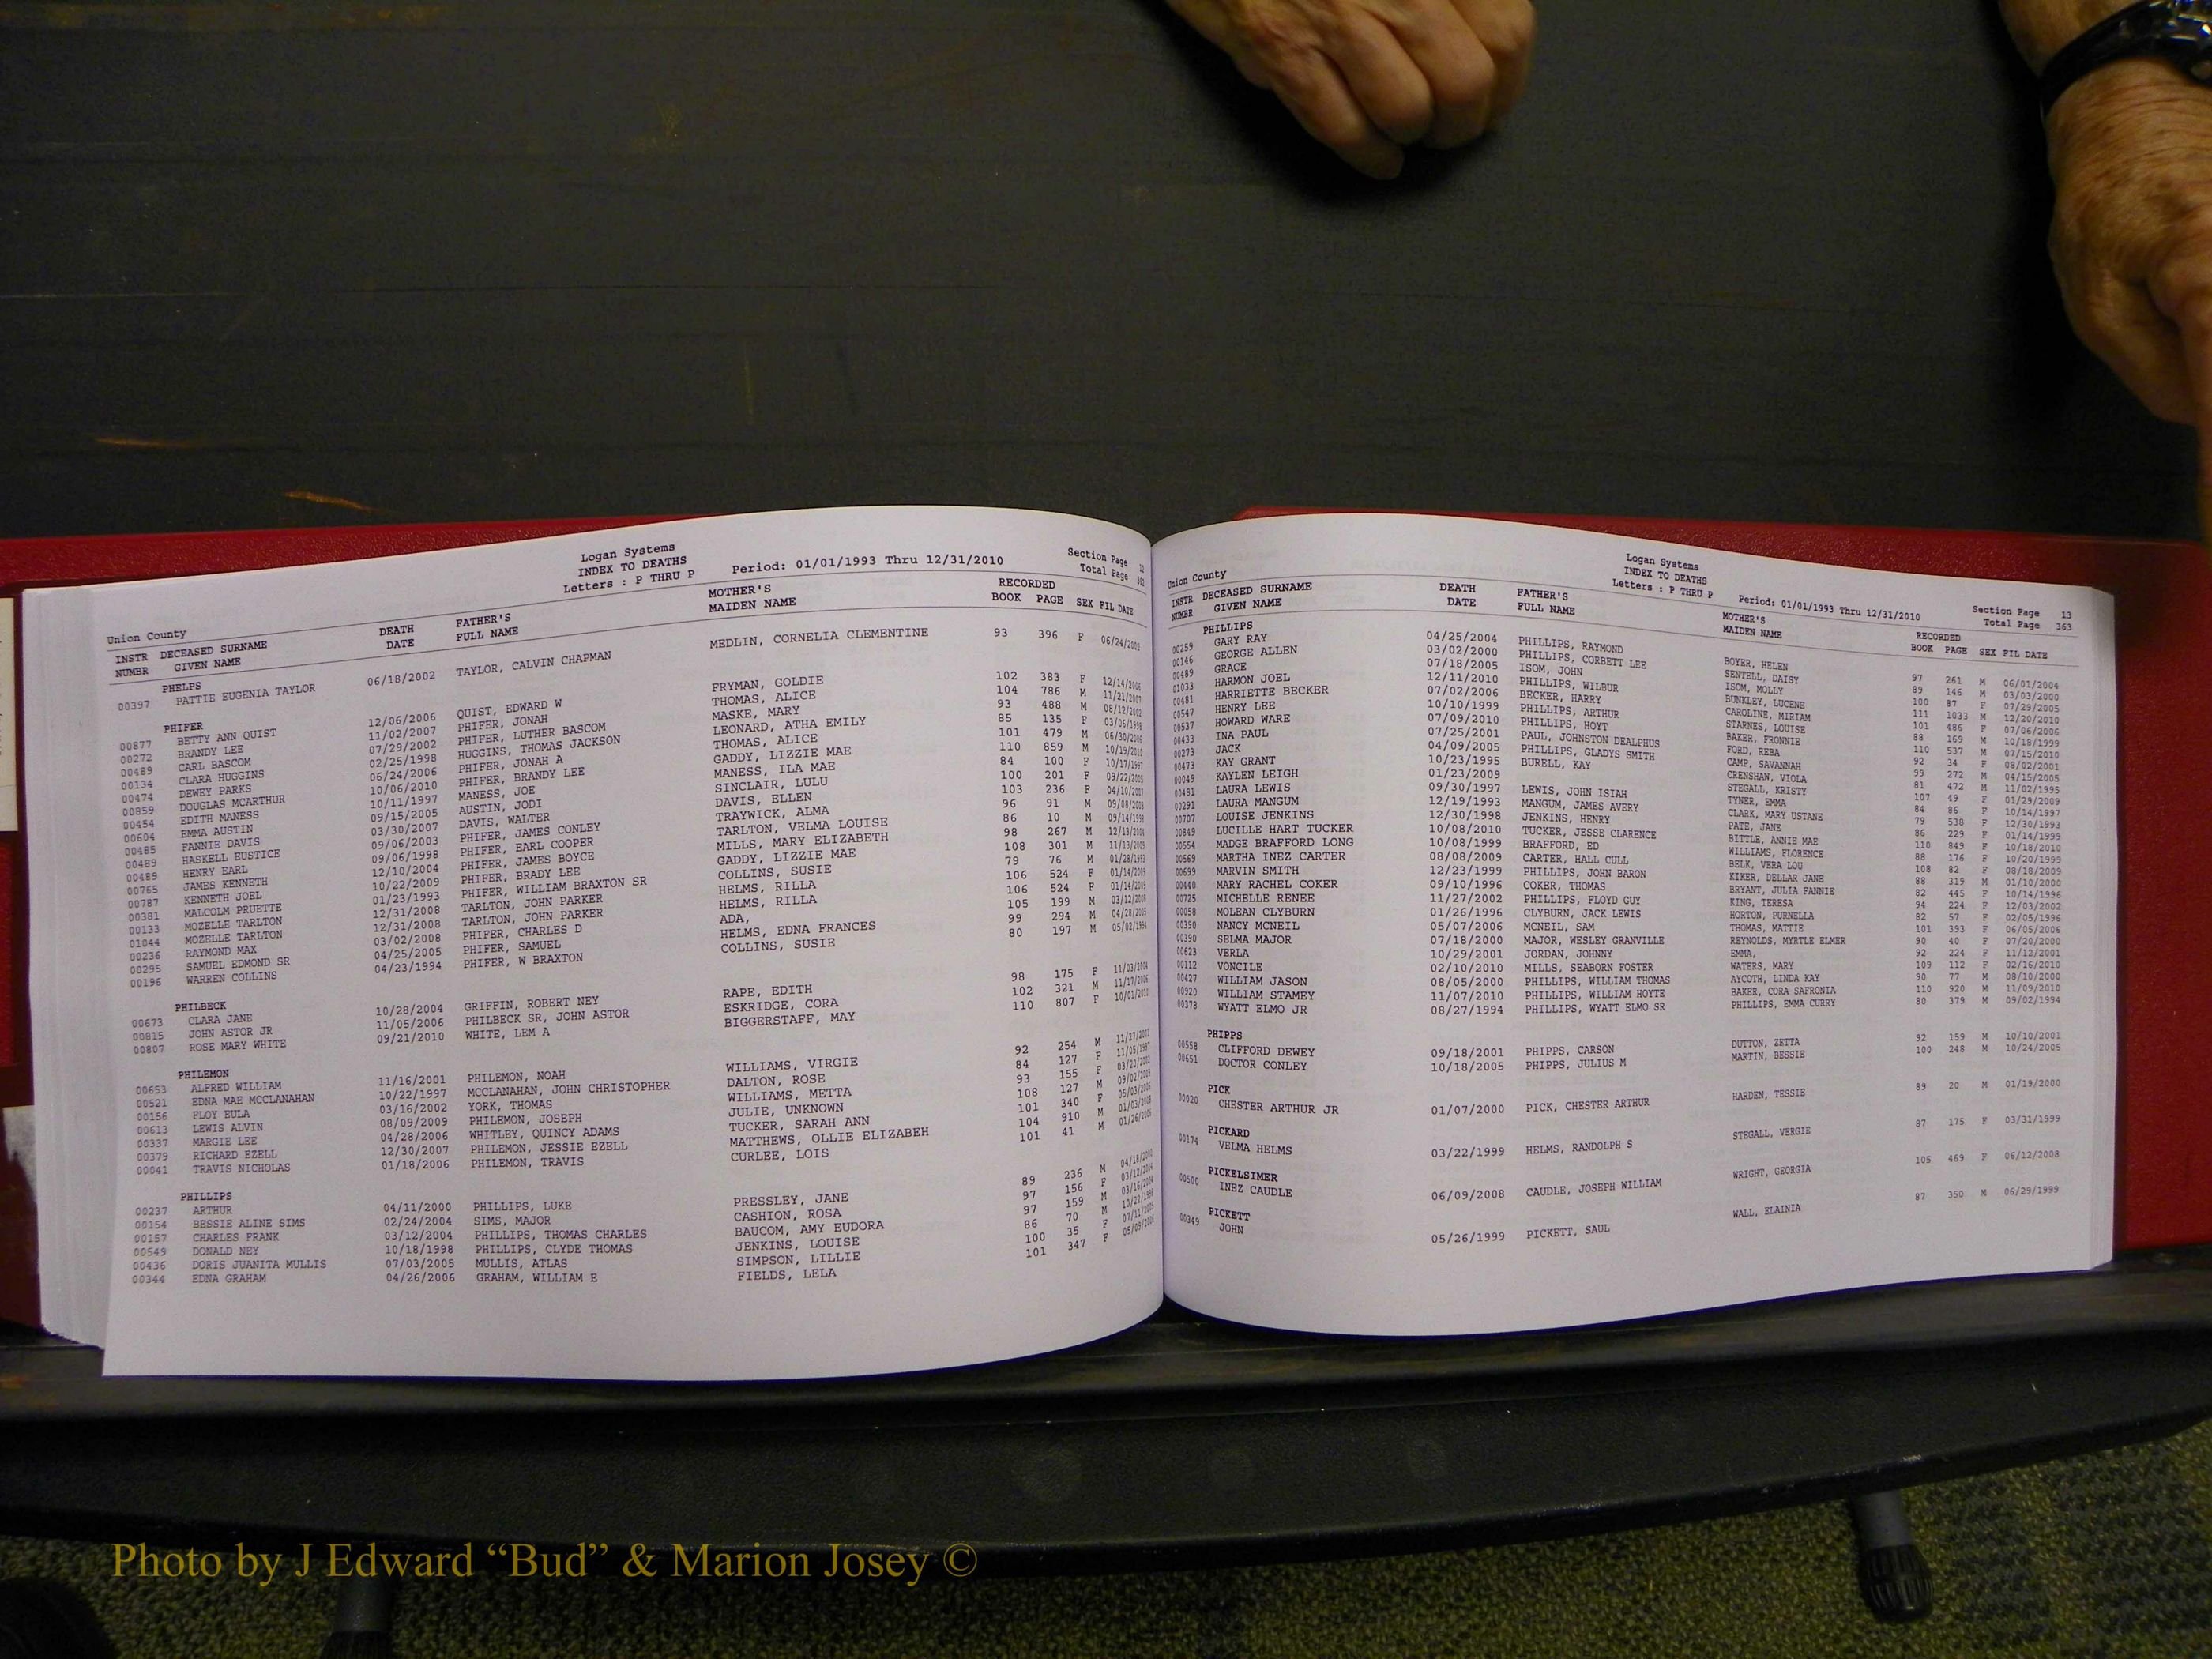 Union County
Logan Systems
INDEX TO DEATHS
Letters : P THRU P
Period: 01/01/1993 Thru 12/31/2010
Section Page 12
Total Page 362
INSTR DECEASED SURNAME DEATH FATHER'S MOTHER'S RECORDED
NUMBR GIVEN NAME DATE FULL NAME MAIDEN NAME BOOK PAGE SEX FIL DATE
PHELPS
00397 PATTIE EUGENIA TAYLOR 06/18/2002 TAYLOR, CALVIN CHAPMAN MEDLIN, CORNELIA CLEMENTINE 93 396 F 06/24/2002
PHIFER
00877 BETTY ANN QUIST 12/06/2006 QUIST, EDWARD W FRYMAN, GOLDIE 102 383 F 12/14/2006
00272 BRANDY LEE 11/02/2007 PHIFER, JONAH THOMAS, ALICE 104 786 M 11/21/2007
00489 CARL BASCOM 07/29/2002 PHIFER, LUTHER BASCOM MASKE, MARY 93 488 M 08/12/2002
00134 CLARA HUGGINS 02/25/1998 HUGGINS, THOMAS JACKSON LEONARD, ATHA EMILY 85 135 F 03/06/1998
00474 DEWEY PARKS 06/24/2006 PHIFER, JONAH A THOMAS, ALICE 101 479 M 06/30/2006
00859 DOUGLAS MCARTHUR 10/06/2010 PHIFER, BRANDY LEE GADDY, LIZZIE MAE 110 859 M 10/19/2010
00454 EDITH MANESS 10/11/1997 MANESS, JOE MANESS, ILA MAE 84 100 F 10/17/1997
00604 EMMA AUSTIN 09/15/2005 AUSTIN, JODI SINCLAIR, LULU 100 201 F 09/22/2005
00485 FANNIE DAVIS 03/30/2007 DAVIS, WALTER DAVIS, ELLEN 103 236 F 04/10/2007
00489 HASKELL EUSTICE 09/06/2003 PHIFER, JAMES CONLEY TRAYWICK, ALMA 96 91 M 09/08/2003
00489 HENRY EARL 09/06/1998 PHIFER, EARL COOPER TARLTON, VELMA LOUISE 86 10 M 09/14/1998
00765 JAMES KENNETH 12/10/2004 PHIFER, JAMES BOYCE MILLS, MARY ELIZABETH 98 267 M 12/13/2004
00787 KENNETH JOEL 10/22/2009 PHIFER, BRADY LEE GADDY, LIZZIE MAE 108 301 M 11/13/2009
00381 MALCOLM PRUETTE 01/23/1993 PHIFER, WILLIAM BRAXTON SR COLLINS, SUSIE 79 76 M 01/28/1993
00133 MOZELLE TARLTON 12/31/2008 TARLTON, JOHN PARKER HELMS, RILLA 106 524 F 01/14/2009
01044 MOZELLE TARLTON 12/31/2008 TARLTON, JOHN PARKER HELMS, RILLA 106 524 F 01/14/2009
00236 RAYMOND MAX 03/02/2008 PHIFER, CHARLES D ADA, 105 199 M 03/12/2008
00295 SAMUEL EDMOND SR 04/25/2005 PHIFER, SAMUEL HELMS, EDNA FRANCES 99 294 M 04/28/2005
00196 WARREN COLLINS 04/23/1994 PHIFER, W BRAXTON COLLINS, SUSIE 80 197 M 05/02/1994
PHILBECK
00673 CLARA JANE 10/28/2004 GRIFFIN, ROBERT NEY RAPE, EDITH 98 175 F 11/03/2004
00815 JOHN ASTOR JR 11/05/2006 PHILBECK SR, JOHN ASTOR ESKRIDGE, CORA 102 321 M 11/17/2006
00807 ROSE MARY WHITE 09/21/2010 WHITE, LEM A BIGGERSTAFF, MAY 110 807 F 10/01/2010
PHILEMON
00653 ALFRED WILLIAM 11/16/2001 PHILEMON, NOAH WILLIAMS, VIRGIE 92 254 M 11/27/2001
00521 EDNA MAE MCCLANAHAN 10/22/1997 MCCLANAHAN, JOHN CHRISTOPHER DALTON, ROSE 84 127 F 11/05/1997
00156 FLOY EULA 03/16/2002 YORK, THOMAS WILLIAMS, METTA 93 155 F 03/20/2002
00613 LEWIS ALVIN 08/09/2009 PHILEMON, JOSEPH JULIE, UNKNOWN 108 127 M 09/02/2009
00337 MARGIE LEE 04/28/2006 WHITLEY, QUINCY ADAMS TUCKER, SARAH ANN 101 340 F 05/03/2006
00379 RICHARD EZELL 12/30/2007 PHILEMON, JESSIE EZELL MATTHEWS, OLLIE ELIZABEH 104 910 M 01/03/2008
00041 TRAVIS NICHOLAS 01/18/2006 PHILEMON, TRAVIS CURLEE, LOIS 101 41 M 01/26/2006
PHILLIPS
00237 ARTHUR 04/11/2000 PHILLIPS, LUKE PRESSLEY, JANE 89 236 M 04/18/2000
00154 BESSIE ALINE SIMS 02/24/2004 SIMS, MAJOR CASHION, ROSA 97 156 F 03/12/2004
00157 CHARLES FRANK 03/12/2004 PHILLIPS, THOMAS CHARLES BAUCOM, AMY EUDORA 97 159 M 03/16/2004
00549 DONALD NEY 10/18/1998 PHILLIPS, CLYDE THOMAS JENKINS, LOUISE 86 70 M 10/22/1998
00436 DORIS JUANITA MULLIS 07/03/2005 MULLIS, ATLAS SIMPSON, LILLIE 100 35 F 07/11/2005
00344 EDNA GRAHAM 04/26/2006 GRAHAM, WILLIAM E FIELDS, LELA 101 347 F 05/09/2006
Union County
Logan Systems
INDEX TO DEATHS
Letters : P THRU P
Period: 01/01/1993 Thru 12/31/2010
Section Page 13
Total Page 363
INSTR DECEASED SURNAME DEATH FATHER'S MOTHER'S RECORDED
NUMBR GIVEN NAME DATE FULL NAME MAIDEN NAME BOOK PAGE SEX FIL DATE
PHILLIPS
00259 GARY RAY 04/25/2004 PHILLIPS, RAYMOND BOYER, HELEN 97 261 M 06/01/2004
00146 GEORGE ALLEN 03/02/2000 PHILLIPS, CORBETT LEE SENTELL, DAISY 89 146 M 03/03/2000
00489 GRACE 07/18/2005 ISOM, JOHN ISOM, MOLLY 100 87 F 07/29/2005
01033 HARMON JOEL 12/11/2010 PHILLIPS, WILBUR BUNKLEY, LUCENE 111 1033 M 12/20/2010
00481 HARRIETTE BECKER 07/02/2006 BECKER, HARRY CAROLINE, MIRIAM 101 486 F 07/06/2006
00547 HENRY LEE 10/10/1999 PHILLIPS, ARTHUR STARNES, LOUISE 88 169 M 10/18/1999
00537 HOWARD WARE 07/09/2010 PHILLIPS, HOYT BAKER, FRONNIE 110 537 M 07/15/2010
00433 INA PAUL 07/25/2001 PAUL, JOHNSTON DEALPHUS FORD, REBA 92 34 F 08/02/2001
00273 JACK 04/09/2005 PHILLIPS, GLADYS SMITH CAMP, SAVANNAH 99 272 M 04/15/2005
00473 KAY GRANT 10/23/1995 BURELL, KAY CRENSHAW, VIOLA 81 472 M 11/02/1995
00049 KAYLEN LEIGH 01/23/2009 STEGALL, KRISTY 107 49 F 01/29/2009
00481 LAURA LEWIS 09/30/1997 LEWIS, JOHN ISIAH TYNER, EMMA 84 86 F 10/14/1997
00291 LAURA MANGUM 12/19/1993 MANGUM, JAMES AVERY CLARK, MARY USTANE 79 538 F 12/30/1993
00707 LOUISE JENKINS 12/30/1998 JENKINS, HENRY PATE, JANE 86 229 F 01/14/1999
00849 LUCILLE HART TUCKER 10/08/2010 TUCKER, JESSE CLARENCE BITTLE, ANNIE MAE 110 849 F 10/18/2010
00554 MADGE BRAFFORD LONG 10/08/1999 BRAFFORD, ED WILLIAMS, FLORENCE 88 176 F 10/20/1999
00569 MARTHA INEZ CARTER 08/08/2009 CARTER, HALL CULL BELK, VERA LOU 108 82 F 08/18/2009
00699 MARVIN SMITH 12/23/1999 PHILLIPS, JOHN BARON KIKER, DELLAR JANE 88 319 M 01/10/2000
00440 MARY RACHEL COKER 09/10/1996 COKER, THOMAS BRYANT, JULIA FANNIE 82 445 F 10/14/1996
00725 MICHELLE RENEE 11/27/2002 PHILLIPS, FLOYD GUY KING, TERESA 94 224 F 12/03/2002
00058 MOLEAN CLYBURN 01/26/1996 CLYBURN, JACK LEWIS HORTON, PURNELLA 82 57 F 02/05/1996
00390 NANCY MCNEIL 05/07/2006 MCNEIL, SAM THOMAS, MATTIE 101 393 F 06/05/2006
00390 SELMA MAJOR 07/18/2000 MAJOR, WESLEY GRANVILLE REYNOLDS, MYRTLE ELMER 90 40 F 07/20/2000
00623 VERLA 10/29/2001 JORDAN, JOHNNY EMMA, 92 224 F 11/12/2001
00112 VONCILE 02/10/2010 MILLS, SEABORN FOSTER WATERS, MARY 109 112 F 02/16/2010
00427 WILLIAM JASON 08/05/2000 PHILLIPS, WILLIAM THOMAS AYCOTH, LINDA KAY 90 77 M 08/10/2000
00920 WILLIAM STAMEY 11/07/2010 PHILLIPS, WILLIAM HOYTE BAKER, CORA SAFRONIA 110 920 M 11/09/2010
00378 WYATT ELMO JR 08/27/1994 PHILLIPS, WYATT ELMO SR PHILLIPS, EMMA CURRY 80 379 M 09/02/1994
PHIPPS
00558 CLIFFORD DEWEY 09/18/2001 PHIPPS, CARSON DUTTON, ZETTA 92 159 M 10/10/2001
00651 DOCTOR CONLEY 10/18/2005 PHIPPS, JULIUS M MARTIN, BESSIE 100 248 M 10/24/2005
PICK
00020 CHESTER ARTHUR JR 01/07/2000 PICK, CHESTER ARTHUR HARDEN, TESSIE 89 20 M 01/19/2000
PICKARD
00174 VELMA HELMS 03/22/1999 HELMS, RANDOLPH S STEGALL, VERGIE 87 175 F 03/31/1999
PICKELSIMER
00500 INEZ CAUDLE 06/09/2008 CAUDLE, JOSEPH WILLIAM WRIGHT, GEORGIA 105 469 F 06/12/2008
PICKETT
00349 JOHN 05/26/1999 PICKETT, SAUL WALL, ELAINIA 87 350 M 06/29/1999
Photo by J Edward “Bud” & Marion Josey ©